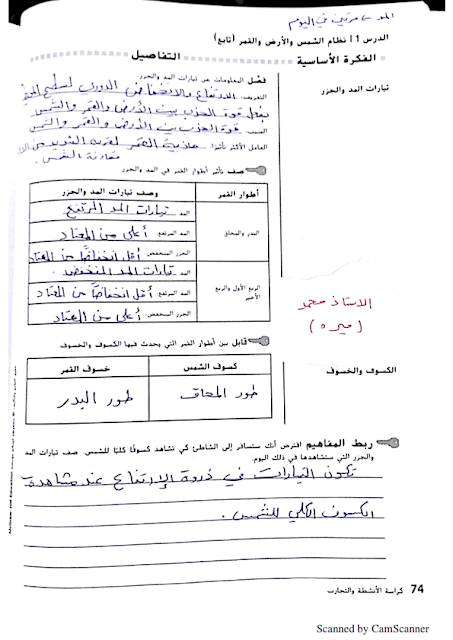 المد > مرتين في اليوم
الدرس 1 | نظام الشمس والأرض والقمر (تابع)
الفكرة الأساسية
التفاصيل
تيارات المد والجزر
فصّل المعلومات عن تيارات المد والجزر.
التعريف: الارتفاع والانخفاض الدوري لسطح
بفعل قوة الجذب بين الأرض والقمر والشمس
السبب: قوة الجذب بين الأرض والقمر والشمس
العامل الأكثر تأثيرًا: جاذبية القمر لقربه الشديد من
مقارنة الشمس.
صف تأثير أطوار القمر في المد والجزر.
أطوار القمر
وصف تيارات المد والجزر
البدر والمحاق
المد: تيارات المد المرتفع
المد المرتفع: أعلى من المعتاد
الجزر المنخفض: أقل انخفاضًا من المعتاد
الربع الأول والربع الأخير
المد: تيارات المد المنخفض.
المد المرتفع: أقل انخفاضًا من المعتاد
الجزر المنخفض: أعلى من المعتاد
الأستاذ محمد
الكسوف والخسوف
قابل بين أطوار القمر التي يحدث فيها الكسوف والخسوف.
كسوف الشمس
خسوف القمر
طور المحاق
طور البدر
ربط المفاهيم افترض أنك ستسافر إلى الشاطئ كي تشاهد كسوفًا كليًا للشمس. صف تيارات المد
والجزر التي ستشاهدها في ذلك اليوم.
تكون التيارات في ذروة الارتفاع عند مشاهدة
الكسوف الكلي للشمس.
74 كراسة الأنشطة والتجارب
Scanned by CamScanner